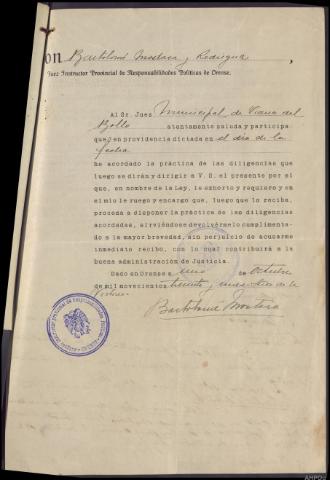 on Bartolomé
Juez Instructor Provincial de Responsabilidades Políticas de Orense.
Al Sr. Juez Municipal de Viana del
Bollo atentamente saluda y participa
que, en providencia dictada en el dia de la
fecha
ha acordado la práctica de las diligencias que
luego se dirán y dirigir a V. S. el presente por el
que, en nombre de la Ley, le exhorto y requiero y en
el mio le ruego y encargo que, luego que lo reciba,
proceda a disponer la práctica de las diligencias
acordadas, sirviéndose devolvérmelo cumplimenta-
do a la mayor brevedad, sin perjuicio de acusarme
inmediato recibo, con lo cual contribuirá a la
buena administración de Justicia.
Dado en Orense a uno de Octubre
de mil novecientos treinta y nueve
Bartolomé
AHPOu